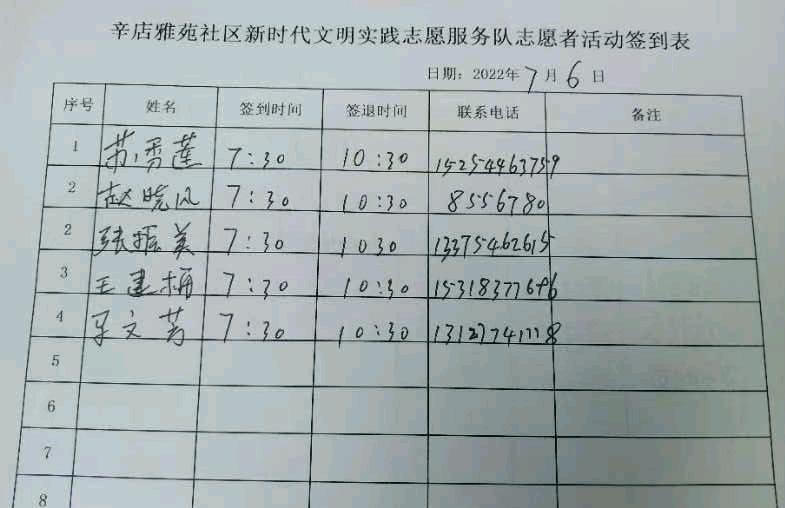 辛店雅苑社区新时代文明实践志愿服务队志愿者活动签到表
日期：2022年7月6日
序号 姓名 签到时间 签退时间 联系电话 备注
1 苏雪莲 7:30 10:30 15254463759
2 赵晓风 7:30 10:30 8556780
2 张振美 7:30 1030 13375462615
3 王建楠 7:30 10:30
4 文芳 7:30 10:30
5
6
7
8